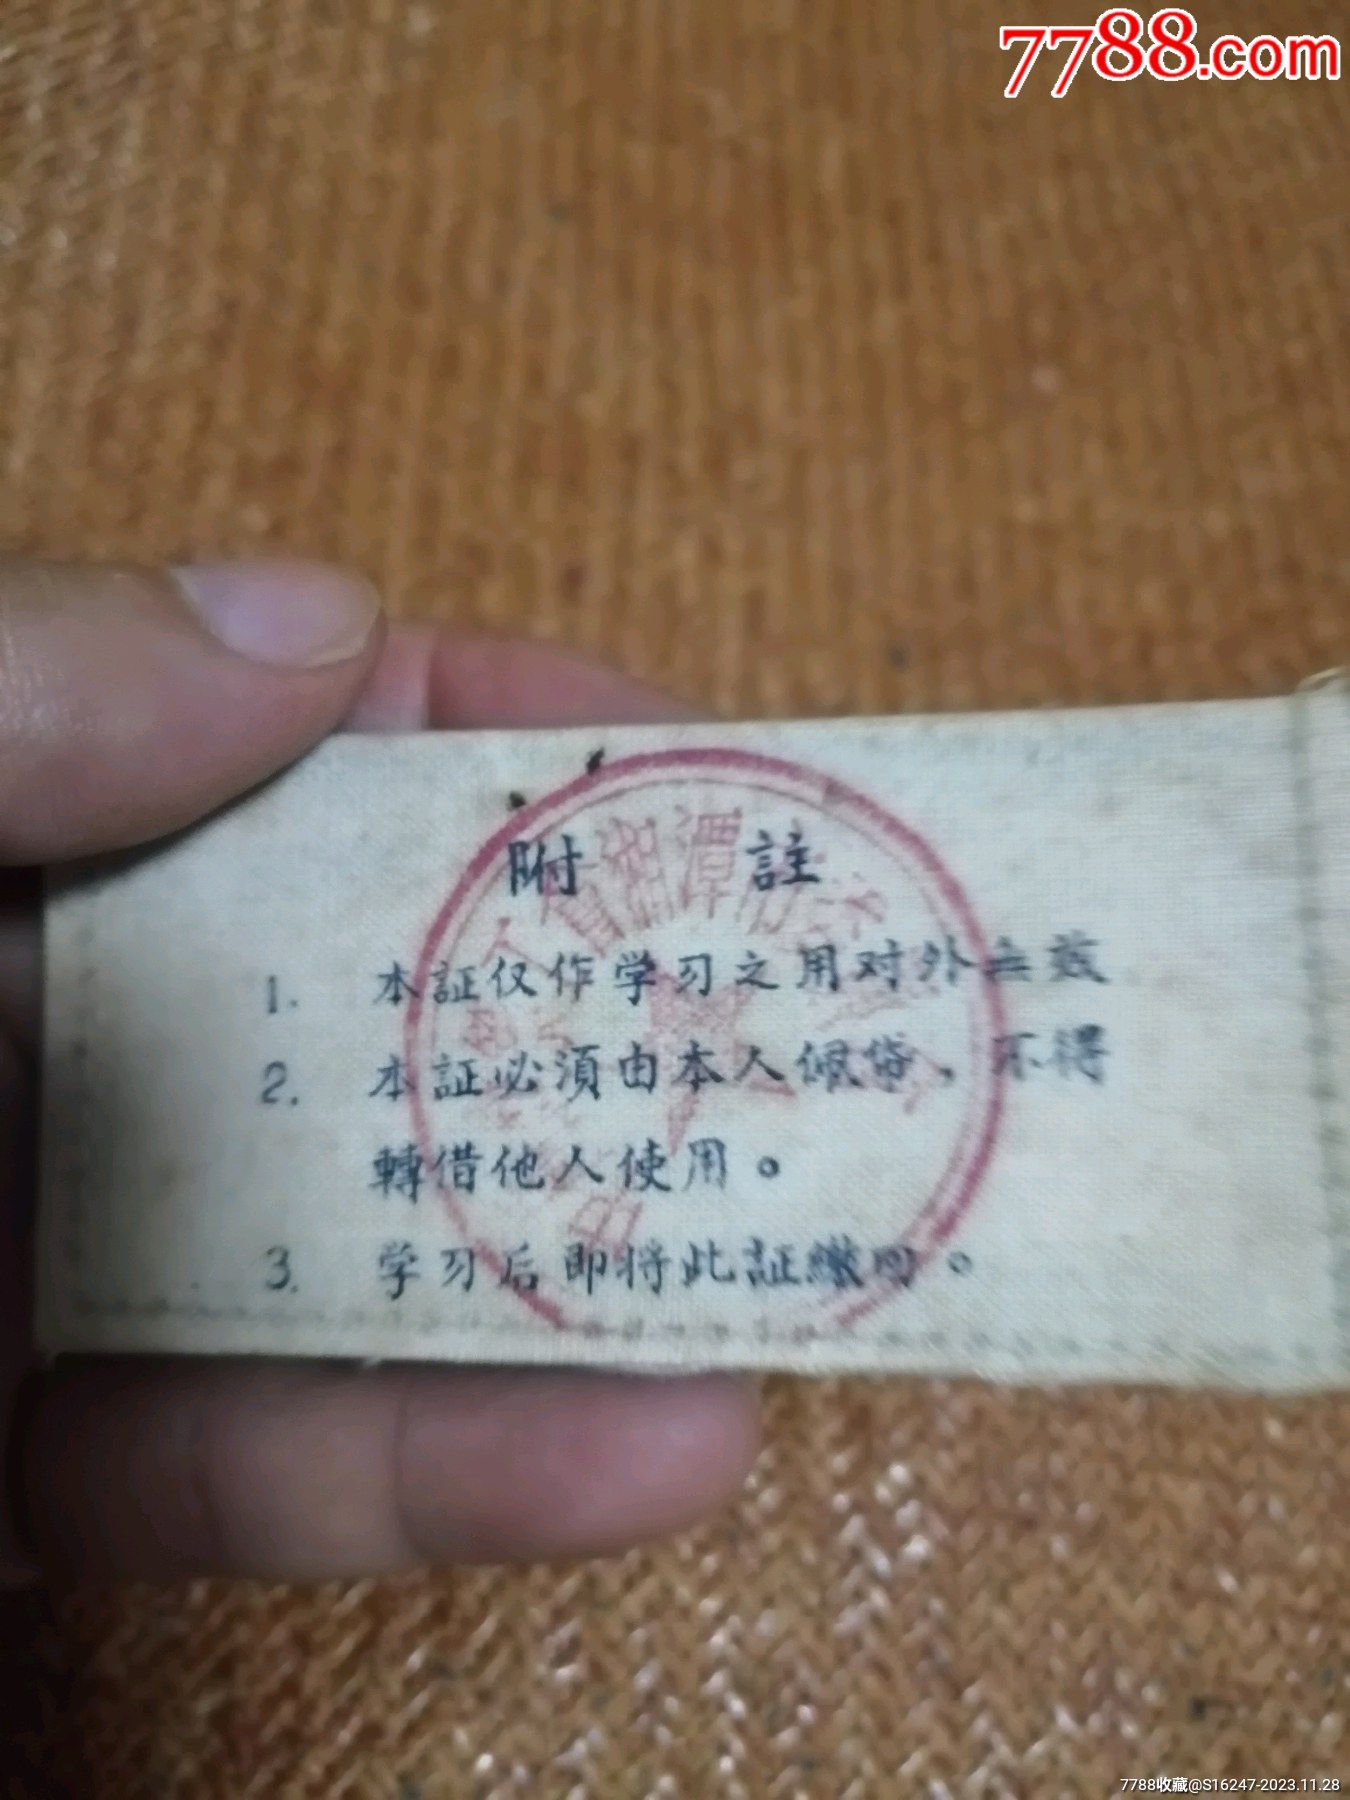 7788.com
附 註
1. 本証仅作学习之用对外無效
2. 本証必須由本人佩帶，不得
轉借他人使用。
3. 学习后即将此証繳回。
省湘潭
7788收藏@S16247-2023.11.28